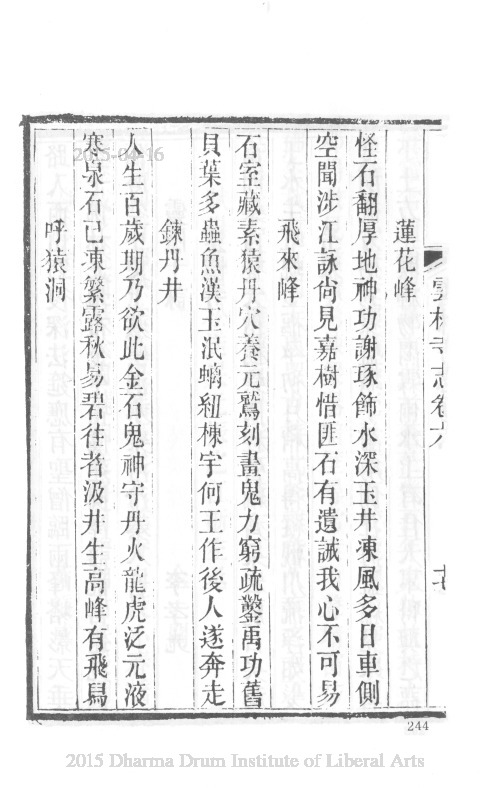 雲林寺志卷六
十七
蓮花峰
怪石翻厚地神功謝琢飾水深玉井凍風多日車側
空聞涉江詠尚見嘉樹惜匪石有遺誠我心不可易
飛來峰
石室藏素猿丹穴養元鵞刻畫鬼力窮疏鑿禹功舊
貝葉多蟲魚漢玉泯螭紐棟宇何王作後人遂奔走
鍊丹井
人生百歲期乃欲此金石鬼神守丹火龍虎泛元液
寒泉石已凍繁露秋易碧往者汲井生高峰有飛舄
呼猿洞
2015-04-16
244
2015 Dharma Drum Institute of Liberal Arts